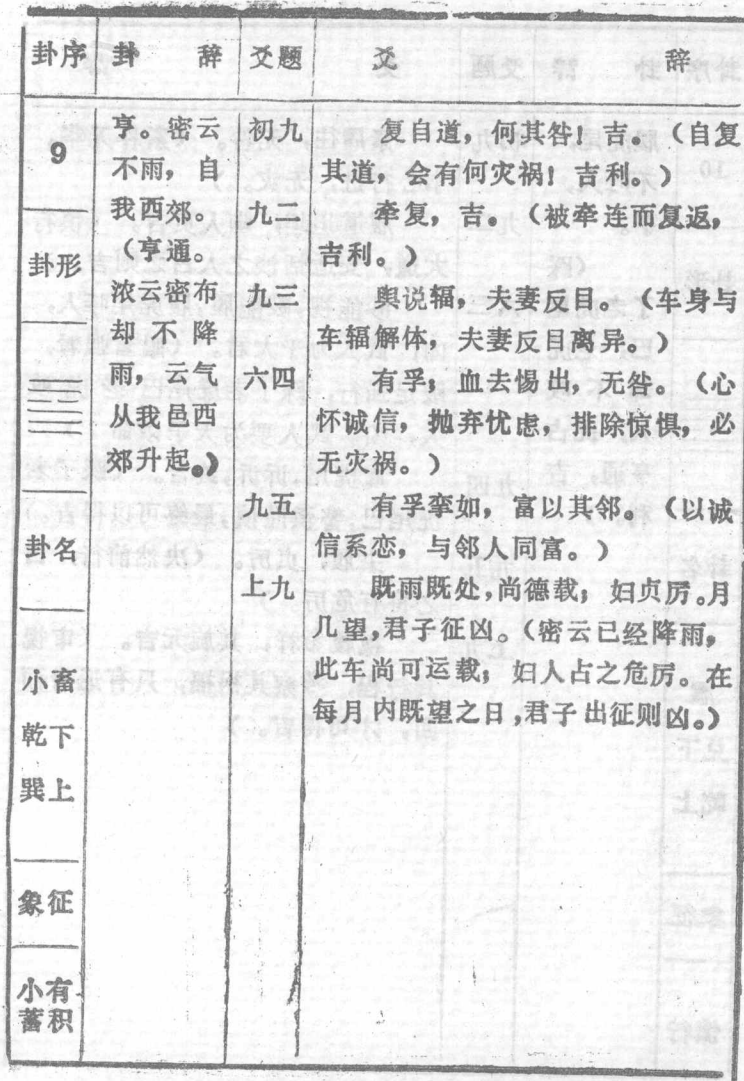 卦序 卦 辞 爻题 爻 辞
9
卦形
卦名
小畜
乾下
巽上
象征
小有
蓄积
亨。密云
不雨，自
我西郊。
（亨通。
浓云密布
却不降
雨，云气
从我邑西
郊升起。）
初九 复自道，何其咎！吉。（自复
其道，会有何灾祸！吉利。）
九二 牵复，吉。（被牵连而复返，
吉利。）
九三 舆说辐，夫妻反目。（车身与
车辐解体，夫妻反目离异。）
六四 有孚；血去惕出，无咎。（心
怀诚信，抛弃忧虑，排除惊惧，必
无灾祸。）
九五 有孚挛如，富以其邻。（以诚
信系恋，与邻人同富。）
上九 既雨既处，尚德载；妇贞厉。月
几望，君子征凶。（密云已经降雨，
此车尚可运载；妇人占之危厉。在
每月内既望之日，君子出征则凶。）